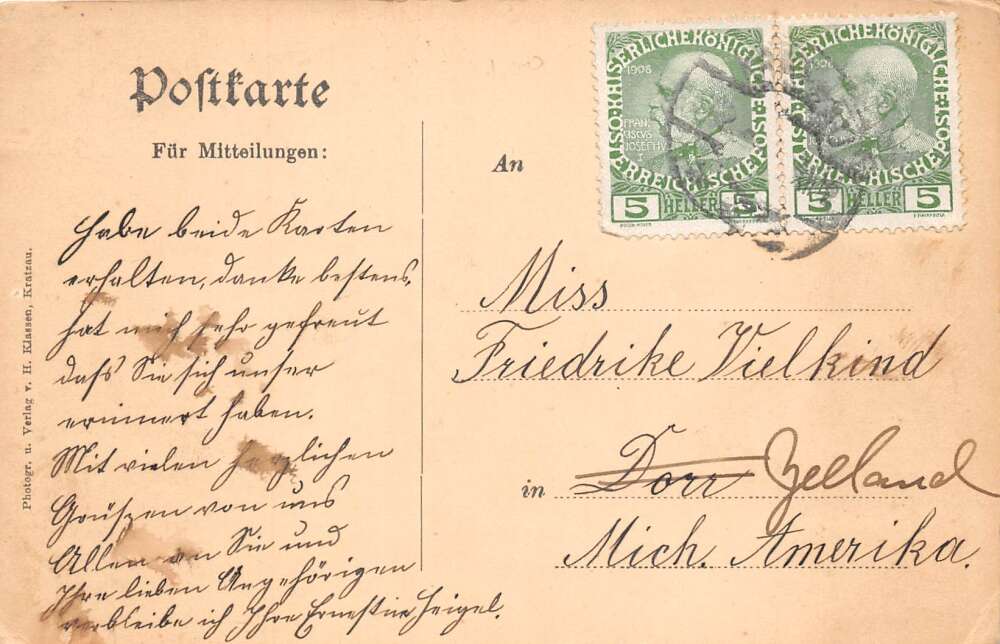 Postkarte
Für Mitteilungen:
An
1908
KAISERLICHE KÖNIGLICHE ÖSTERREICHISCHE POST
FRAN
CISCVS
JOSEPH V
I
5 HELLER 5
1908
KAISERLICHE KÖNIGLICHE ÖSTERREICHISCHE POST
5 HELLER 5
Habe beide Karten
erhalten, danke bestens,
hat mich sehr gefreut
daß Sie sich unser
erinnert haben.
Mit vielen herzlichen
Grüßen von uns
Allen an Sie und
Ihre lieben Angehörigen
verbleibe ich Ihre Ernestine Heigel.
Miss
Friedrike Vielkind
in Dorr Zelland
Mich. Amerika.
Photogr. u. Verlag v. H. Klassen, Kratzau.